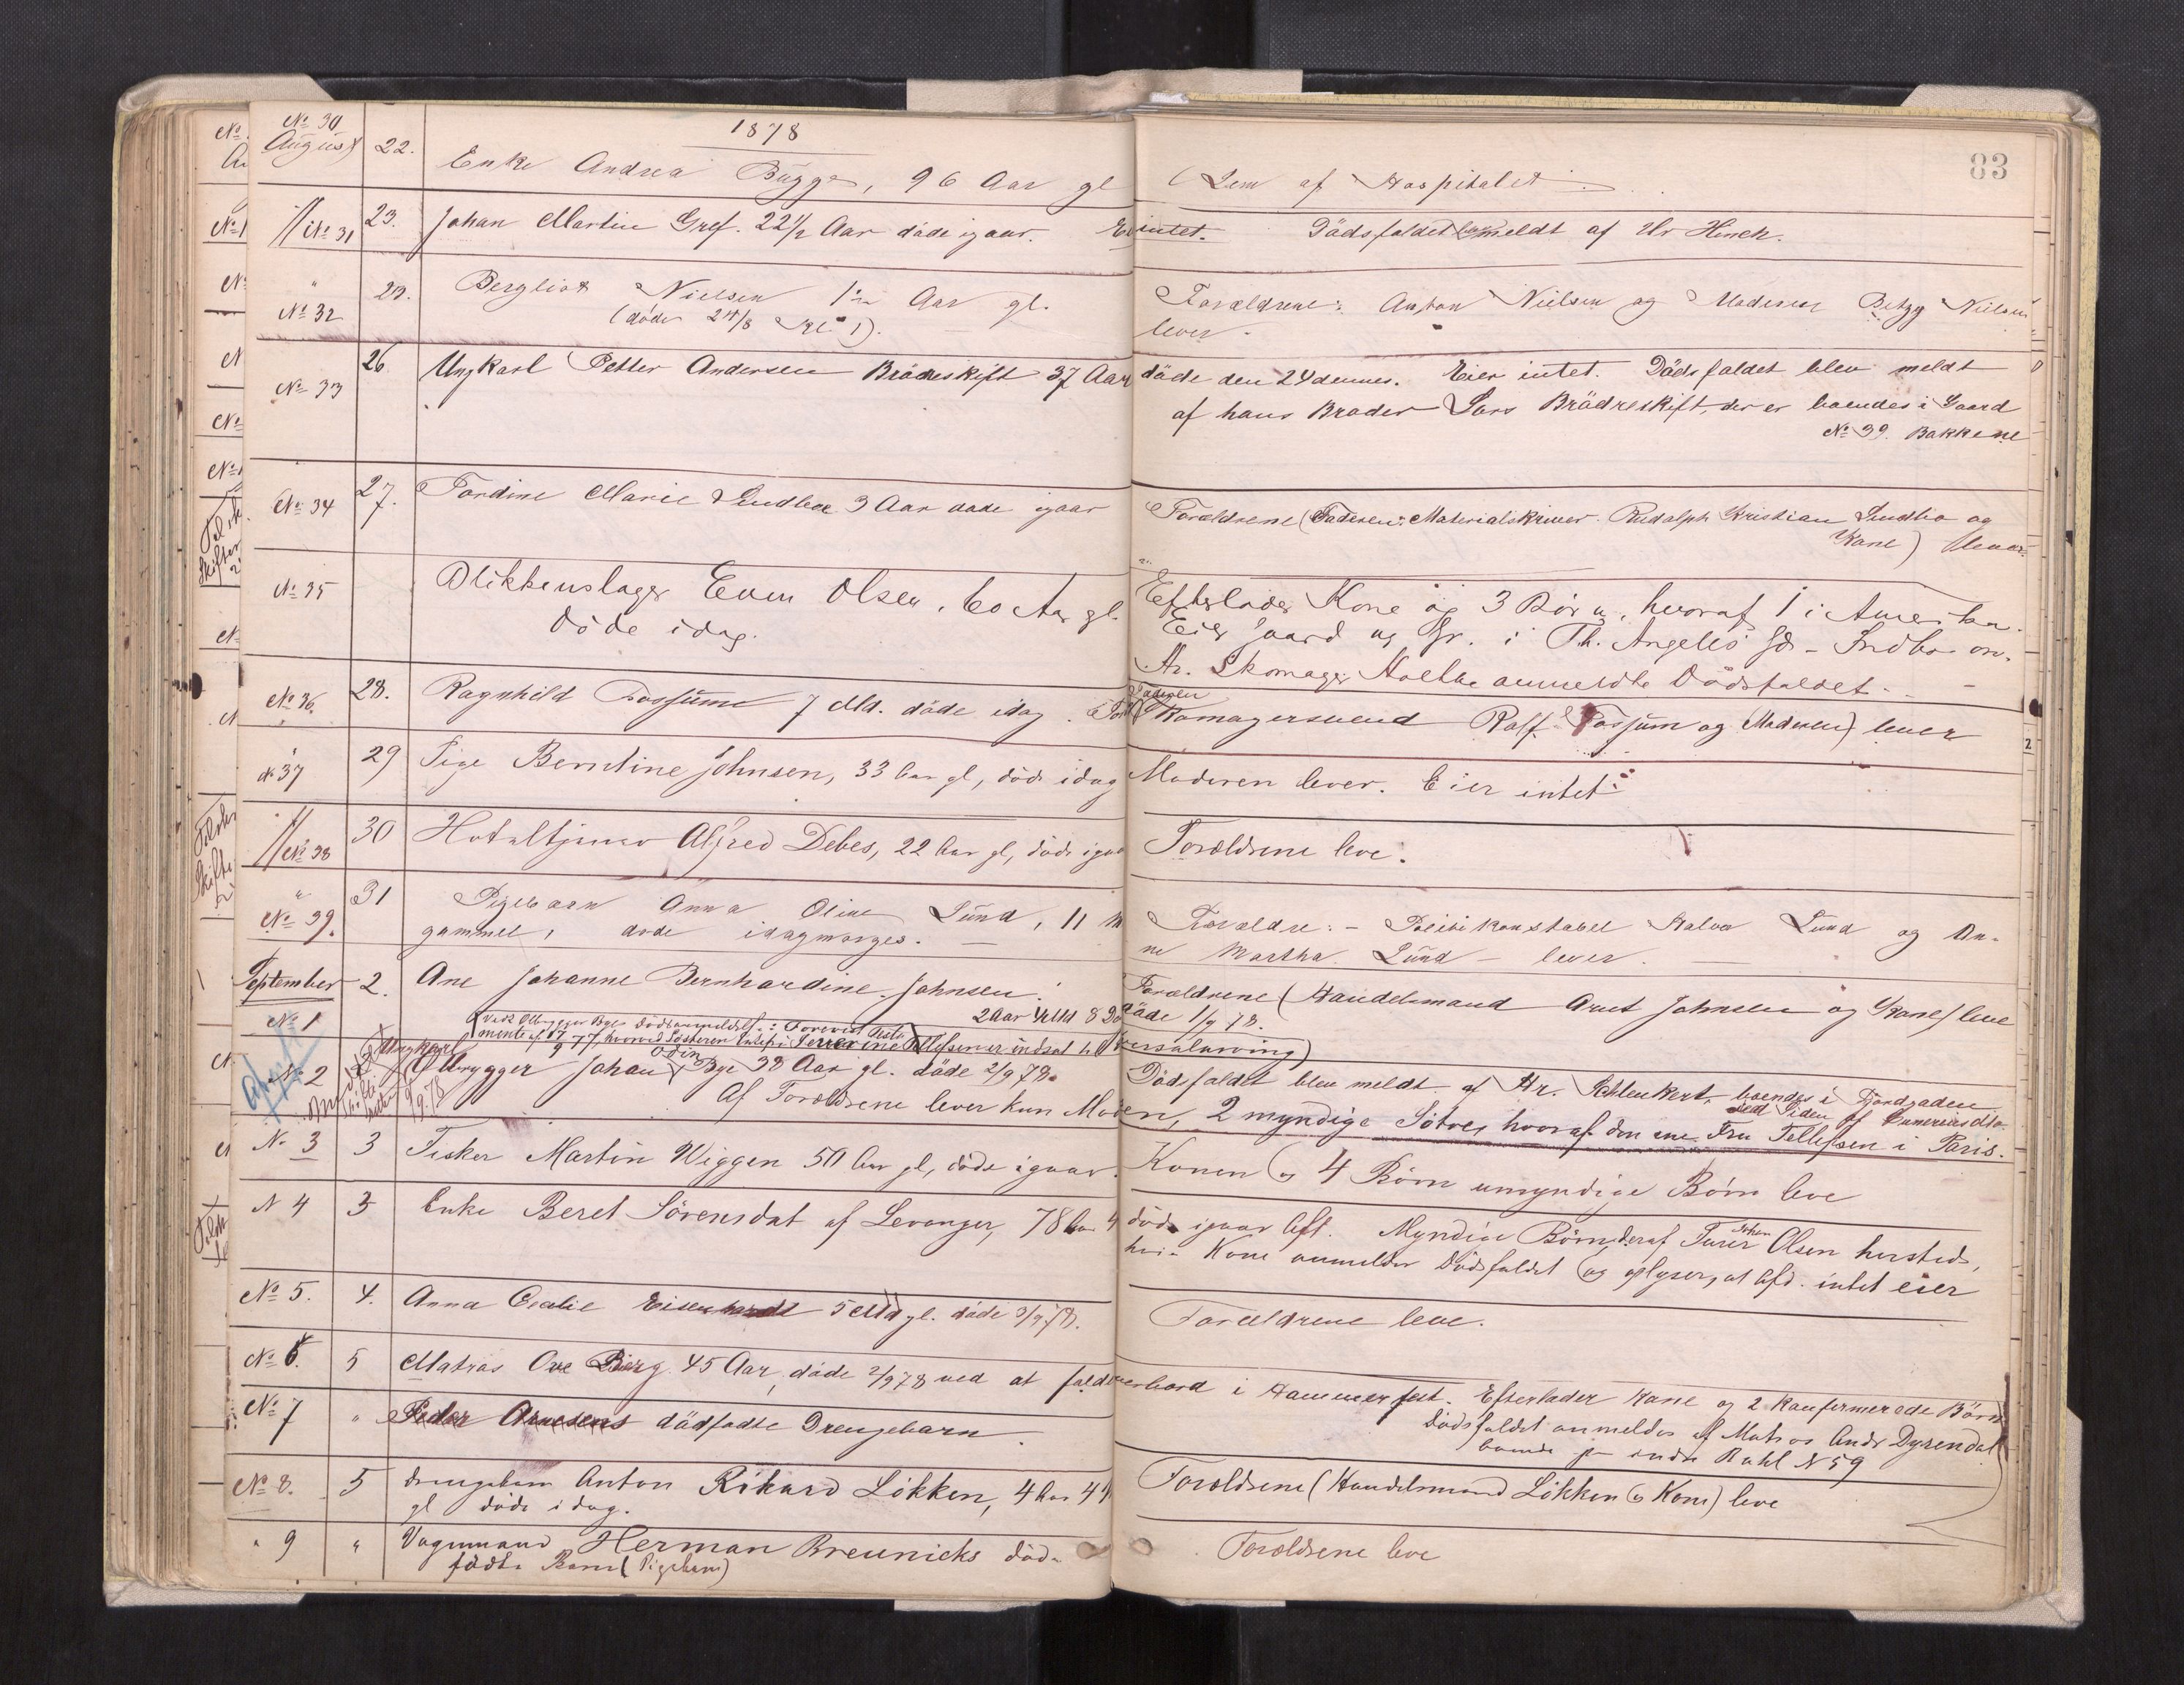 1878
83
No 30
August 22. Enke Andrea Bugge, 96 Aar gl
Lem af Hospitalet
No 31 23. Johan Martin Gref. 22 1/2 Aar döde igaar. Eier intet. Dödsfaldet meldt af Hr Hinch.
" No 32 23. Bergliot Nielsen 1 Aar gl.
(döde 24/8 Kl. 1).
Forældrene: Anton Nielsen og Moderen Betzy Nielsen
lever.
No 33 26. Ungkarl Petter Andersen Brödreskift 37 Aar döde den 24 dennes. Eier intet. Dödsfaldet blev meldt
af hans Broder Lars Brödreskift, der er boendes i Gaard
No 39. Bakkene
No 34 27. Tordine Marie Lindboe 3 Aar döde igaar
Forældrene (Faderen: Materialskriver Rudolph Kristian Lindbo og
Kone) lever
No 35 Blikkenslager Even Olsen, 60 Aar gl.
döde idag.
Efterlader Kone og 3 Börn, hvoraf 1 i Amerika.
Eier Gaard og Gr. i Th. Angells Gd - Indbo
Hr. Skomager Holthe anmeldte Dödsfaldet.
No 36. 28. Ragnhild Fossum 7 Md. döde idag.
Faderen
Skomagersvend Rolf Fossum og Moderen) lever
No 37 29 Pige Berntine Johnsen, 33 Aar gl, döde idag Moderen lever. Eier intet
No 38 30 Hoteltjener Alfred Debes, 22 Aar gl, döde igaar Forældrene leve.
" No 39. 31 Pigebarn Anna Oline Lund, 11 M
gammel, döde idagmorges.
Forældre: - Politikonstabel Halvor Lund og An-
ne Martha Lund - lever.
September 2. Ane Johanne Bernhardine Johnsen
No 1
2 Aar 4 Md 8 D döde 1/9 78.
Forældrene (Handelsmand Arnt Johnsen og Kone) leve
No 2 Ungkarl
Ölbrygger Johan Odin Bye 38 Aar gl. döde 2/9 78.
Dödsfaldet blev meldt af Hr. Schlenkert, boendes i Fjordgaden
ved Siden af
Af Forældrene lever kun Moderen, 2 myndige Söstre, hvoraf den ene Fru Tellefsen i Paris.
No 3 3 Fisker Martin Wiggen 50 Aar gl, döde igaar. Konen og 4 Börn umyndige Börn leve
N 4 3 Enke Beret Sörensdat af Levanger, 78 Aar gl döde igaar Aft. Myndige Börn, deraf Johan Olsen hersteds,
hvis Kone anmelder Dödsfaldet og oplyser, at Afd. intet eier
No 5. 4. Anna Cecilie Eisenhardt 5 Md gl. döde 3/9 78. Forældrene leve.
No 6. 5 Matros Ove Berg 45 Aar, döde 2/9 78 ved at falde overbord i Hammerfest. Efterlader Kone og 2 konfirmerede Börn
Dödsfaldet anmeldes af Matros Andr Dyrendal
boende i indre Bakl N 59
No 7 " Peder Arnesens dödfödte Drengebarn.
No 8. 5 Drengebarn Anton Rikard Lökken, 4 Aar 4 M
gl döde idag.
Forældrene (Handelsmand Lökken og Kone) leve
" 9 " Vognmand Herman Breunicks död-
födte Barn (Pigebarn)
Forældrene leve